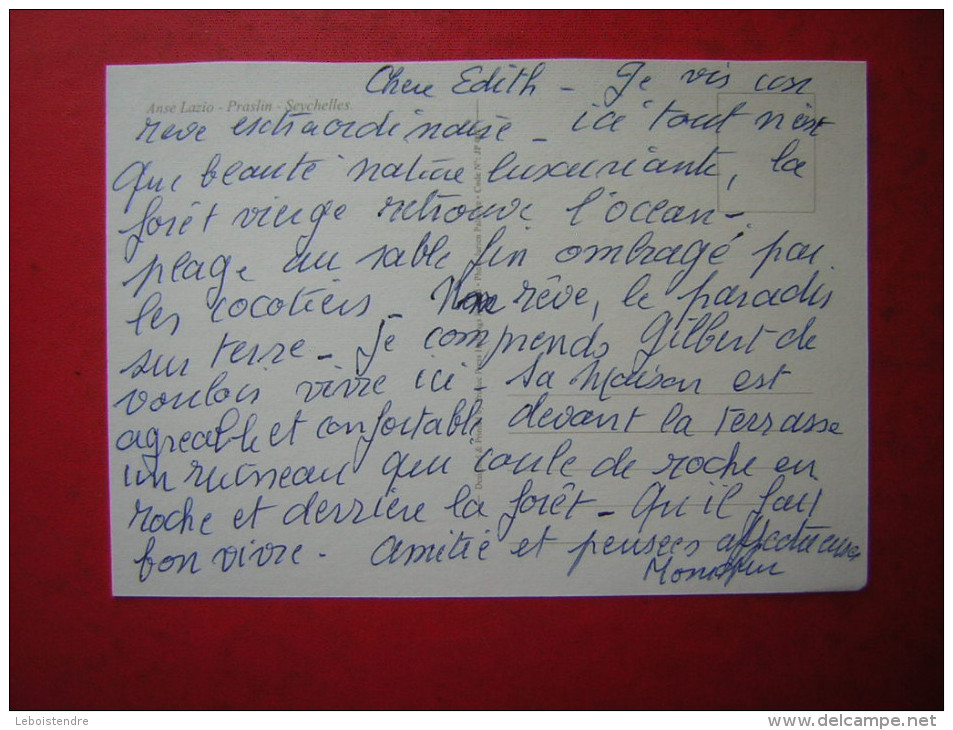 Chere Edith - Je vis
Anse Lazio - Praslin - Seychelles.
reve extraordinaire - ici tout n'est
que beauté nature luxuriante, la
forêt vierge retrouve l'océan -
plage au sable fin ombragé par
les cocotiers - Mon rêve, le paradis
sur terre - Je comprends Gilbert de
vouloir vivre ici - Sa maison est
agreable et confortable, devant la terrasse
un ruisseau qui coule de roche en
roche et derrière la forêt - Qu'il fait
bon vivre - Amitié et pensées affectueuses
Leboistendre
www.delcampe.net